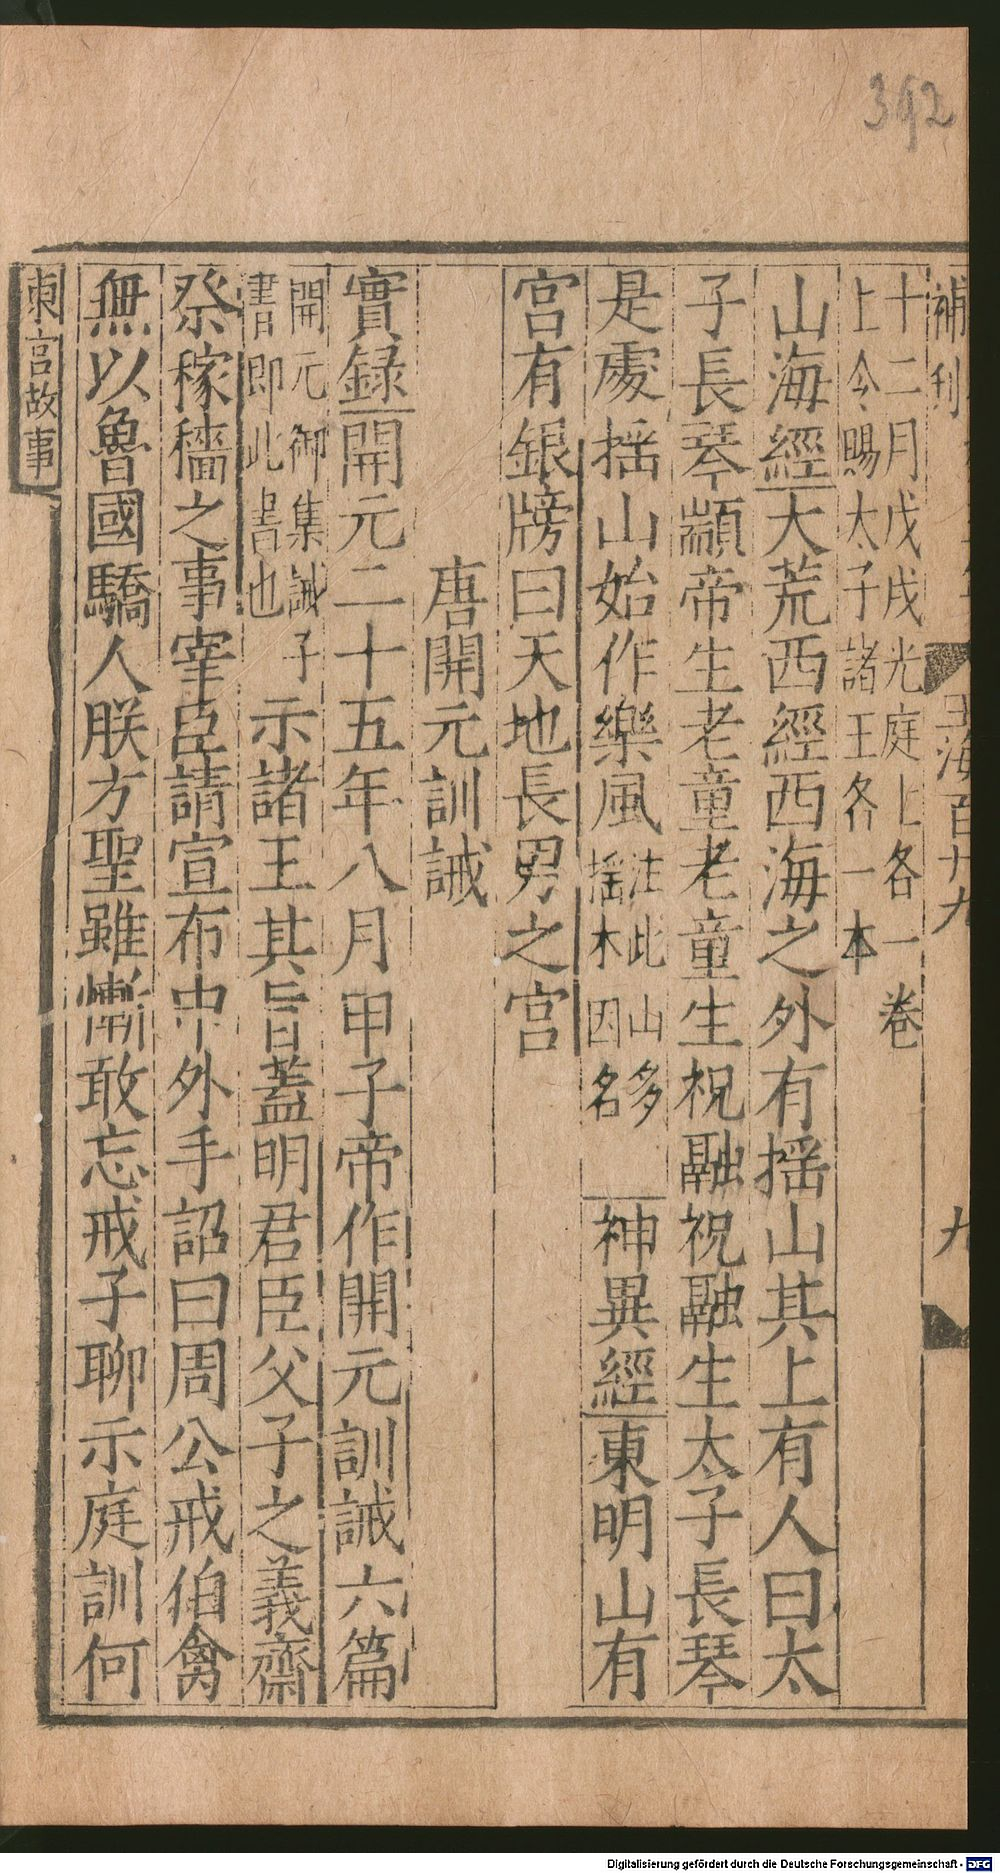 392
補刊
玉海百廿九
九
十二月戊戌光庭上各一卷
上令賜太子諸王各一本
山海經大荒西經西海之外有揺山其上有人曰太
子長琴顓帝生老童老童生祝融祝融生太子長琴
是處揺山始作樂風注此山多
揺木因名
神異經東明山有
宮有銀牓曰天地長男之宮
唐開元訓誡
實錄開元二十五年八月甲子帝作開元訓誡六篇
開元御集誡子
書即此書也
示諸王其旨蓋明君臣父子之義齋
祭稼穡之事宰臣請宣布中外手詔曰周公戒伯禽
無以魯國驕人朕方聖雖慚敢忘戒子聊示庭訓何
東宮故事
Digitalisierung gefördert durch die Deutsche Forschungsgemeinschaft - DFG